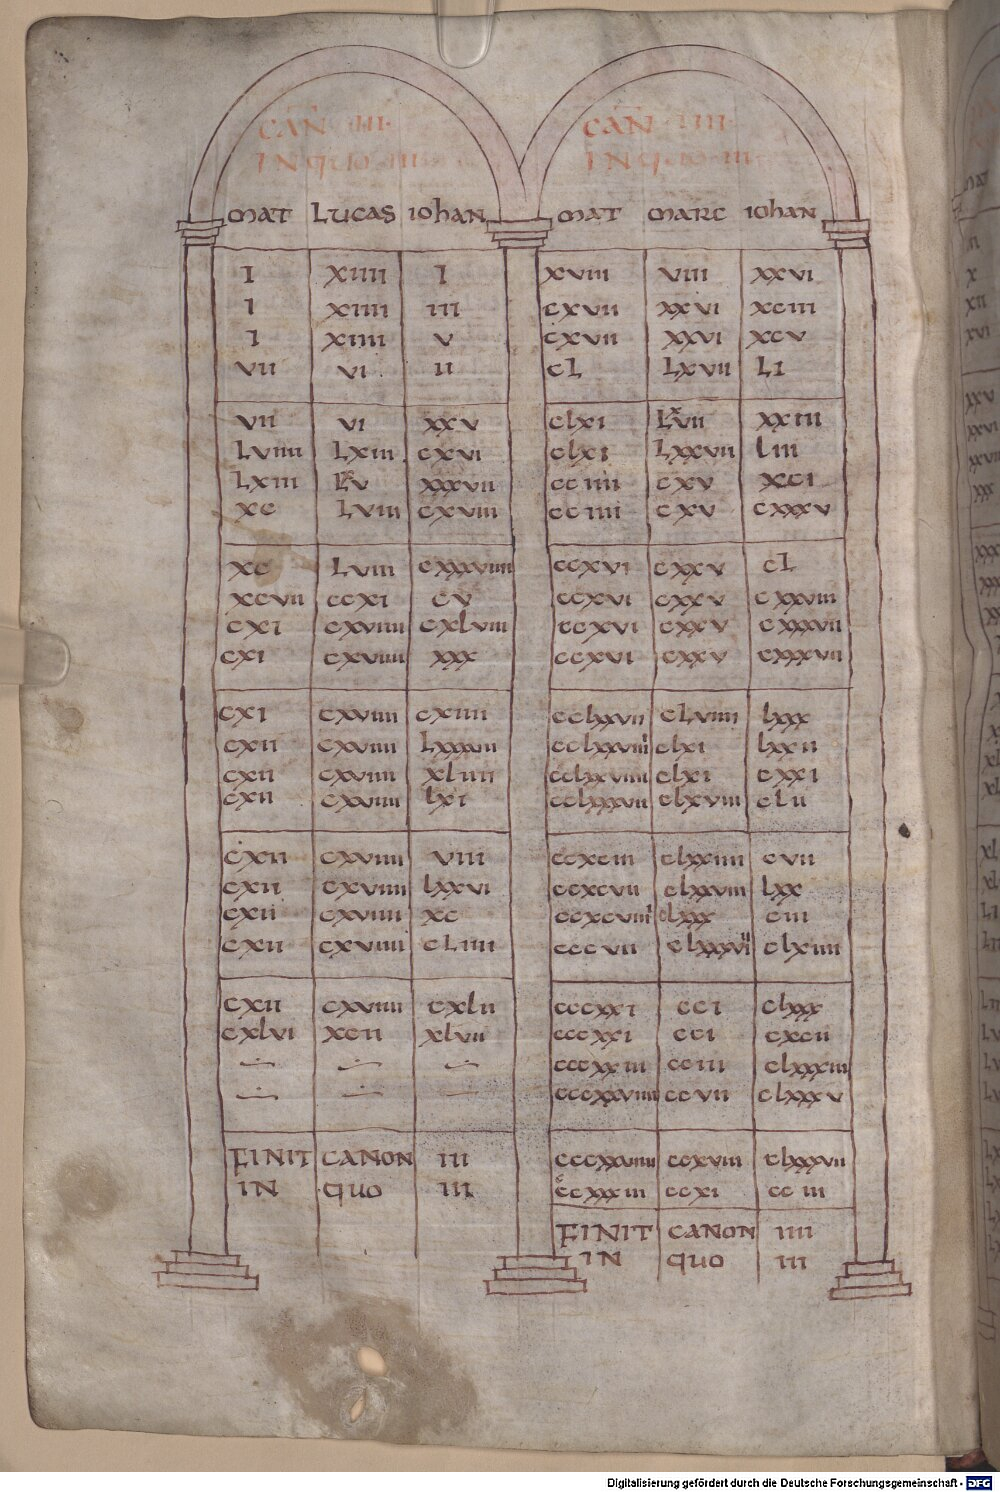 CAÑ ·III·
IN quo ·III·
MAT LUCAS IOhAN
I XIIII I
I XIIII III
I XIIII V
VII VI II
VII VI XXV
LVIIII LXIII CXVI
LXIII LXV XXXVII
XC LVIII CXVIII
XC LVIII CXXXVIIII
XCVII CCXI CV
CXI CXVIIII CXLVIII
CXI CXVIIII XXX
CXI CXVIIII CXIIII
CXII CXVIIII LXXXVII
CXII CXVIIII XLIIII
CXII CXVIIII LXI
CXII CXVIIII VIII
CXII CXVIIII LXXVI
CXII CXVIIII XC
CXII CXVIIII CLIIII
CXII CXVIIII CXLII
CXLVI XCII XLVII
FINIT CANON III
IN quo III
CAÑ ·IIII·
IN quo ·III·
MAT MARC IOhAN
XVIII VIII XXVI
CXVII XXVI XCIII
CXVII XXVI XCV
CL LXVII LI
CLXI LXVII XXIII
CLXI LXXVII LIII
CCIIII CXV XCI
CCIIII CXV CXXXV
CCXVI CXXV CL
CCXVI CXXV CXXVIII
CCXVI CXXV CXXXVII
CCXVI CXXV CXXXVII
CCLXXVII CLVIIII LXXX
CCLXXVIIII CLXI LXXII
CCLXXVIIII CLXI CXXI
CCLXXXVII CLXVIII CLII
CCXCIII CLXXIIII CVII
CCXCVII CLXXVIII LXX
CCXCVIIII CLXXX CIII
CCCVII CLXXXVII CLXIIII
CCCXXI CCI CLXXX
CCCXXI CCI CXCII
CCCXXIII CCIII CLXXXIII
CCCXXVIIII CCVII CLXXXV
CCCXXVIIII CCXVIII CLXXXVII
CCCXXXIII CCXI CCIII
FINIT CANON IIII
IN quo III
Digitalisierung gefördert durch die Deutsche Forschungsgemeinschaft - DFG